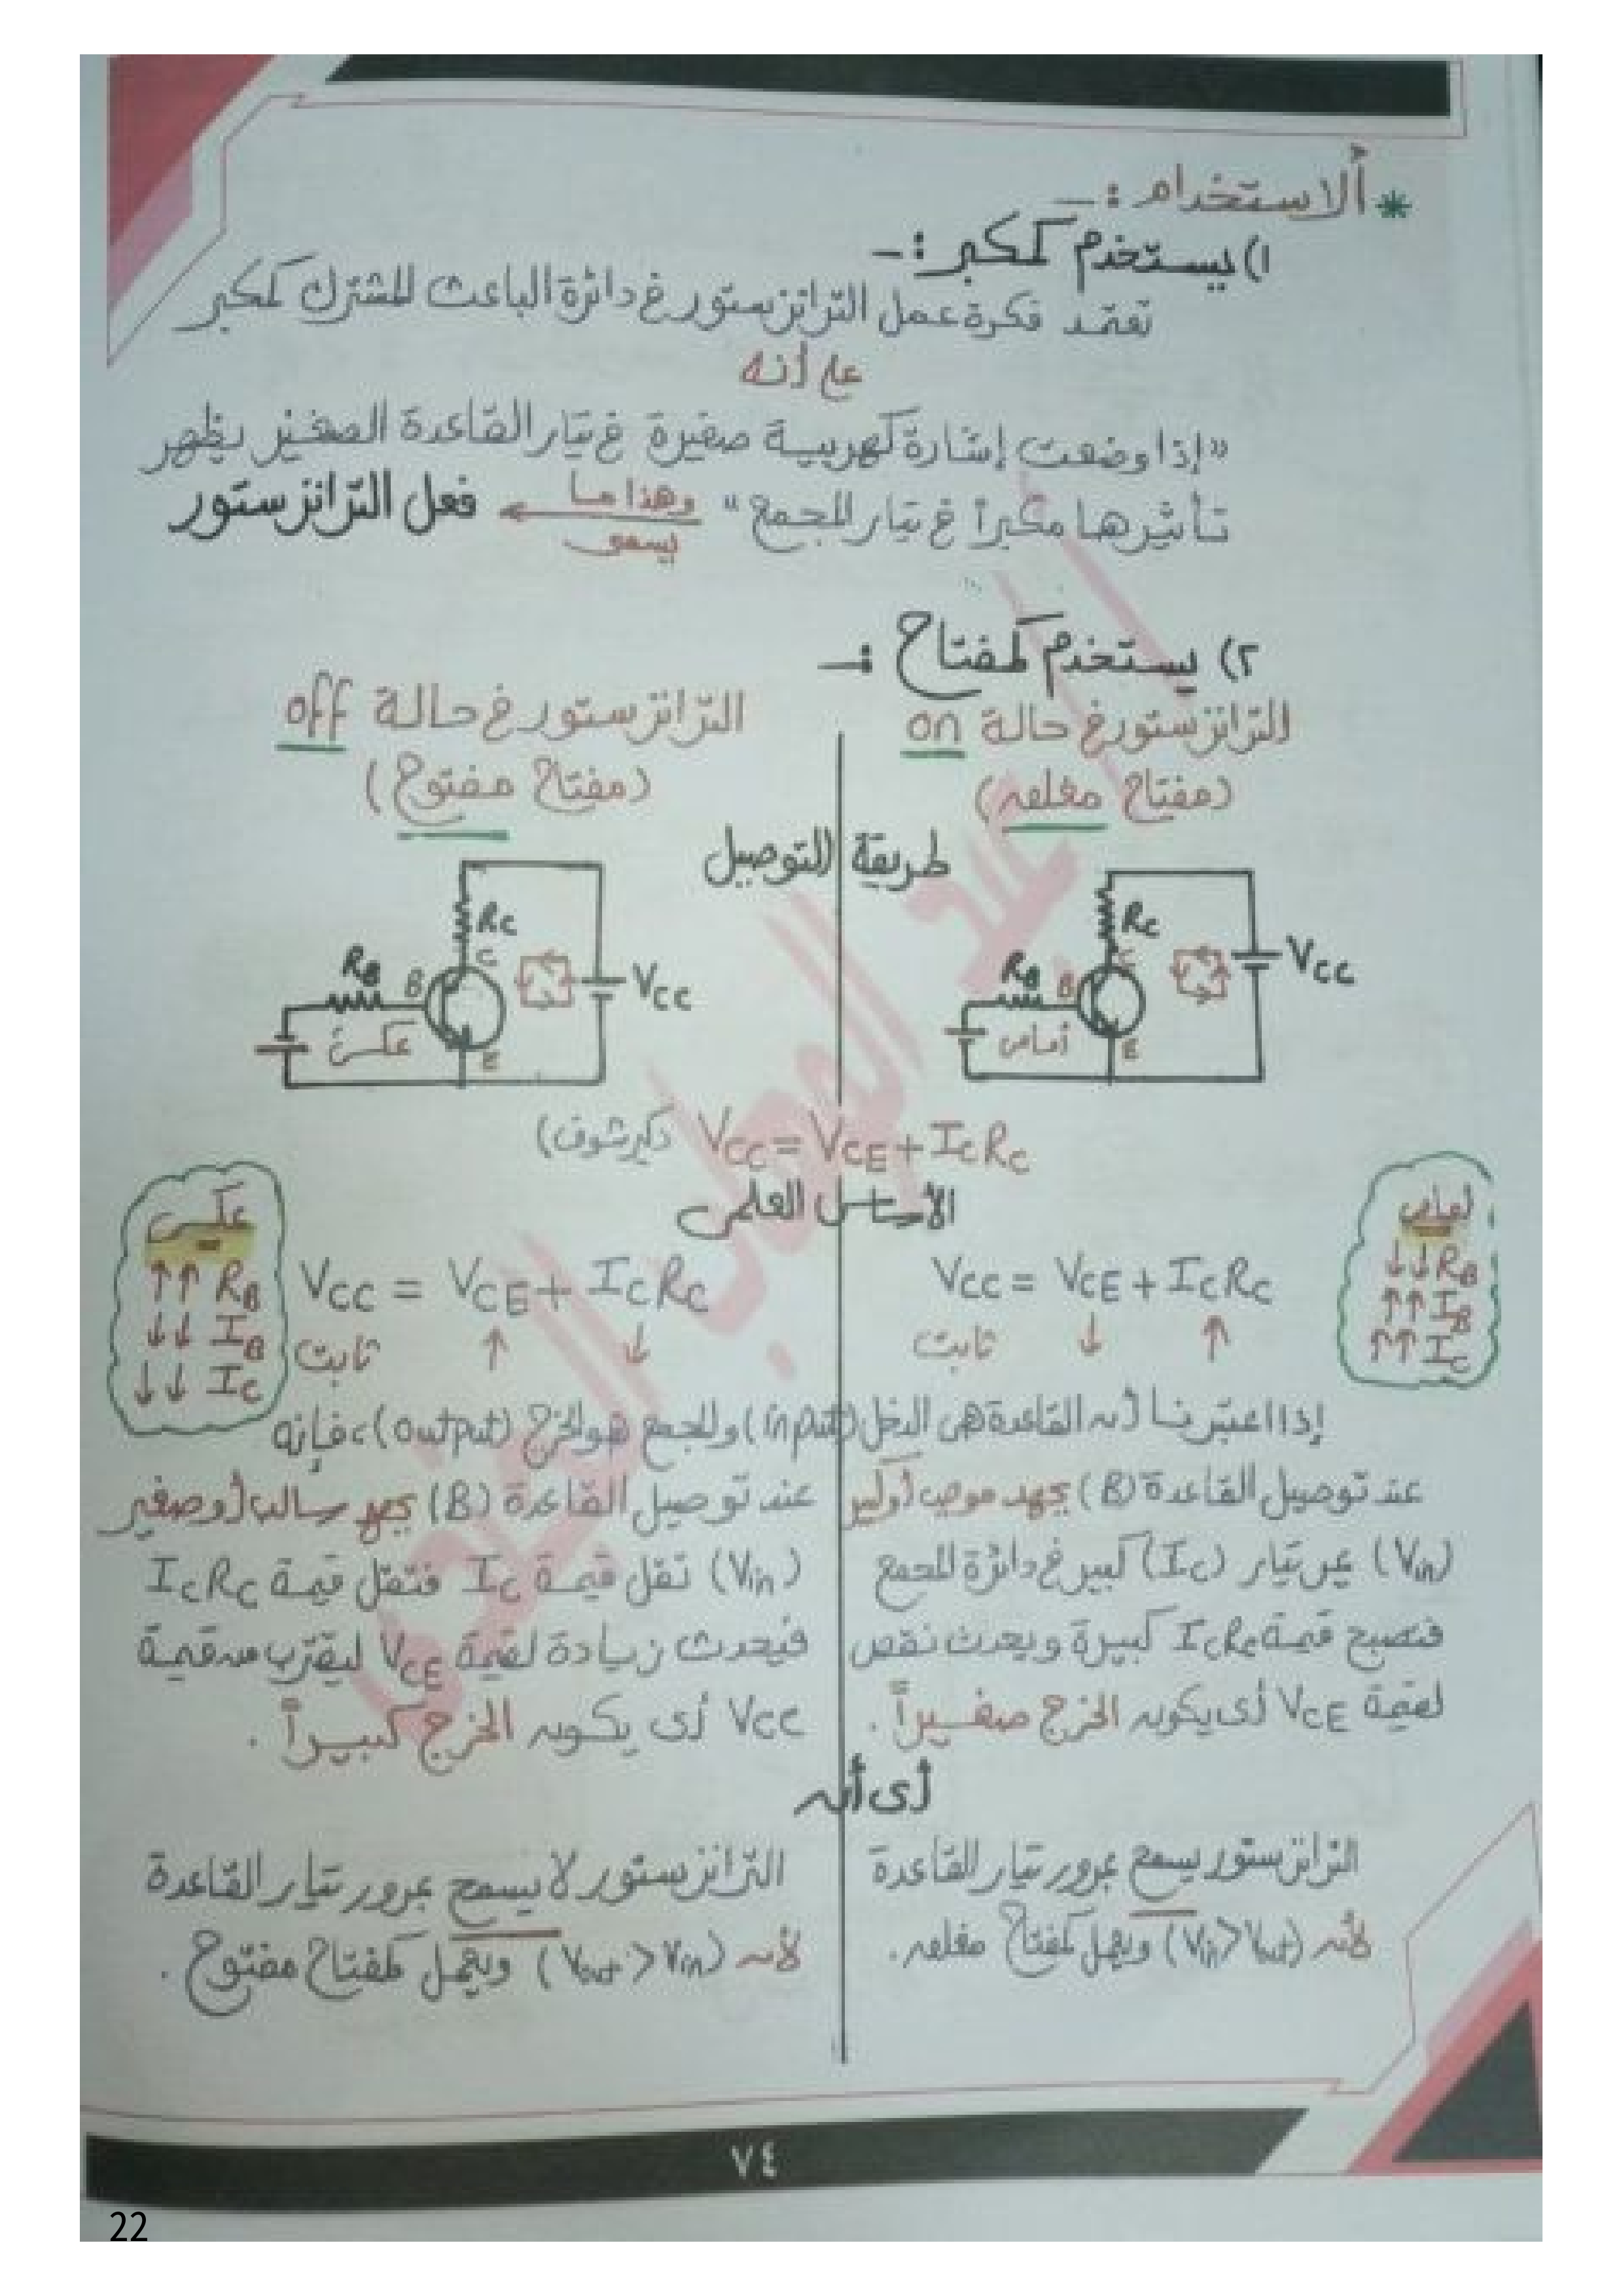 * الاستخدام :-
١) يستخدم كمكبر :-
تعتمد فكرة عمل الترانزستور في دائرة الباعث المشترك كمكبر
على أنه
"إذا وضعت إشارة كهربية صغيرة في تيار القاعدة الصغير يظهر
تأثيرها مكبراً في تيار المجمع" وهذا ما يسمى فعل الترانزستور
٢) يستخدم كمفتاح :-
الترانزستور في حالة on
(مفتاح مغلق)
الترانزستور في حالة off
(مفتاح مفتوح)
طريقة التوصيل
RC
C
RB
B
E
أمامى
VCC
RC
C
RB
B
E
عكسى
VCC
VCC = VCE + ICRC
الأساس العلمى
أمامى
↓↓ RB
↑↑ IB
↑↑ IC
VCC = VCE + ICRC
ثابت ↓ ↑
عكسى
↑↑ RB
↓↓ IB
↓↓ IC
VCC = VCE + ICRC
ثابت ↑ ↓
إذا اعتبرنا أن القاعدة هى الدخل (input) والمجمع هو الخرج (output)، فإنه
عند توصيل القاعدة (B) بجهد موجب أو كبير
(Vin) يمر تيار (IC) كبير في دائرة المجمع
فتصبح قيمة ICRC كبيرة ويحدث نقص
لقيمة VCE أى يكون الخرج صغيراً .
عند توصيل القاعدة (B) بجهد سالب أو صغير
(Vin) تقل قيمة IC فتقل قيمة ICRC
فيحدث زيادة لقيمة VCE ليقترب من قيمة
VCC أى يكون الخرج كبيراً .
أى أن
الترانزستور يسمح بمرور تيار القاعدة
لأن (Vin > Vout) ويعمل كمفتاح مغلق .
الترانزستور لا يسمح بمرور تيار القاعدة
لأن (Vout > Vin) ويعمل كمفتاح مفتوح .
٧٤
22